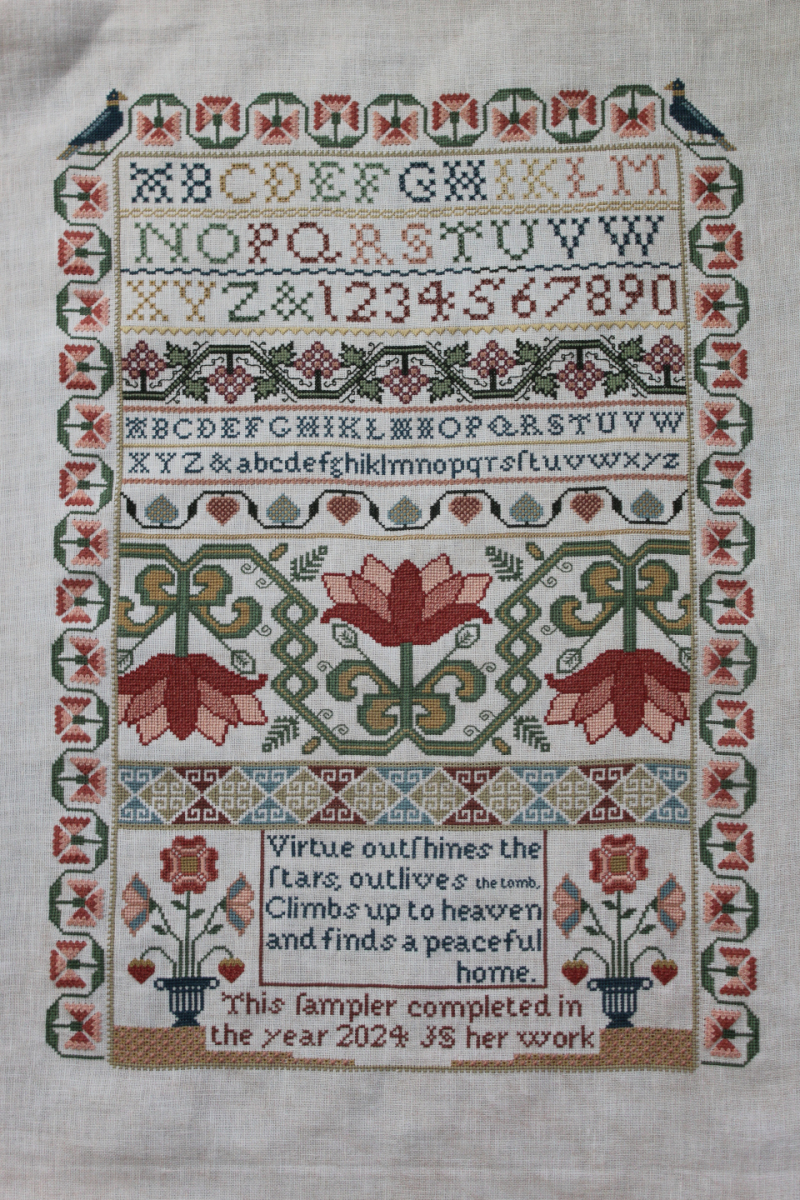 ABCDEFGHIKLM
NOPQRSTUVW
XYZ&1234567890
ABCDEFGHIKLMNOPQRSTUVW
XYZ&abcdefghiklmnopqrsſtuvwxyz
Virtue outſhines the
ſtars, outlives the tomb,
Climbs up to heaven
and finds a peaceful
home.
This ſampler completed in
the year 2024 JS her work